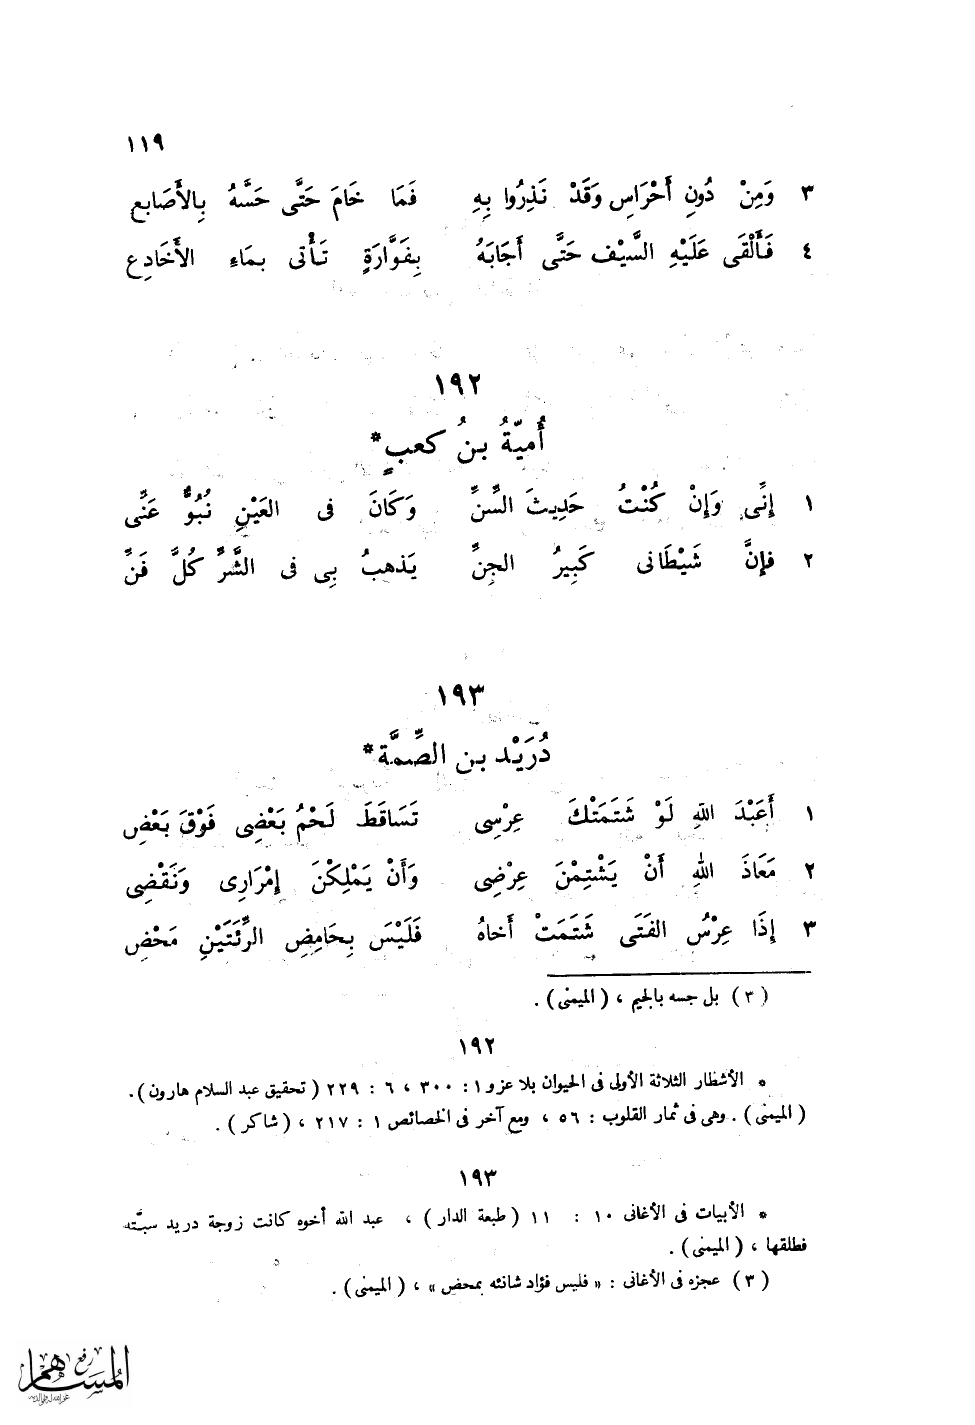 ١١٩
٣ وَمِنْ دُونِ أَحْرَاسٍ وَقَدْ نَذِرُوا بِهِ فَمَا خَامَ حَتَّى حَسَّهُ بِالأَصَابِعِ
٤ فَأَلْقَى عَلَيْهِ السَّيْفَ حَتَّى أَجَابَهُ بِفَوَّارَةٍ تَأْتى بمَاءِ الأَخَادِعِ
١٩٢
أُميّةُ بنُ كعبٍ*
١ إِنِّى وَإِنْ كُنْتُ حَدِيثَ السِّنِّ وَكَانَ فى العَيْنِ نُبُوٌّ عَنِّى
٢ فإِنَّ شَيْطَانى كَبِيرُ الجِنِّ يَذهبُ بِى فى الشَّرِّ كُلَّ فَنِّ
١٩٣
دُرَيْد بن الصِّمَّة*
١ أَعَبْدَ اللهِ لَوْ شَتَمَتْكَ عِرْسِى تَسَاقَطَ لَحْمُ بَعْضِى فَوْقَ بَعْضِ
٢ مَعَاذَ اللهِ أَنْ يَشْتِمْنَ عِرْضِى وَأَنْ يَمْلِكْنَ إِمْرَارِى وَنَقْضِى
٣ إِذَا عِرْسُ الفَتَى شَتَمَتْ أَخاهُ فَلَيْسَ بِحَامِضِ الرِّئَتَيْنِ مَحْضِ
(٣) بل جسه بالجيم ، (الميمنى) .
١٩٢
* الأشطار الثلاثة الأولى فى الحيوان بلا عزو ١ : ٣٠٠ ، ٦ : ٢٢٩ (تحقيق عبد السلام هارون) .
(الميمنى) . وهى فى ثمار القلوب : ٥٦ ، ومع آخر فى الخصائص ١ : ٢١٧ ، (شاكر) .
١٩٣
* الأبيات فى الأغانى ١٠ : ١١ (طبعة الدار) ، عبد الله أخوه كانت زوجة دريد سبَّته
فطلقها ، (الميمنى) .
(٣) عجزه فى الأغانى : « فليس فؤاد شانئه بمحض » ، (الميمنى) .
رفع
المساهم